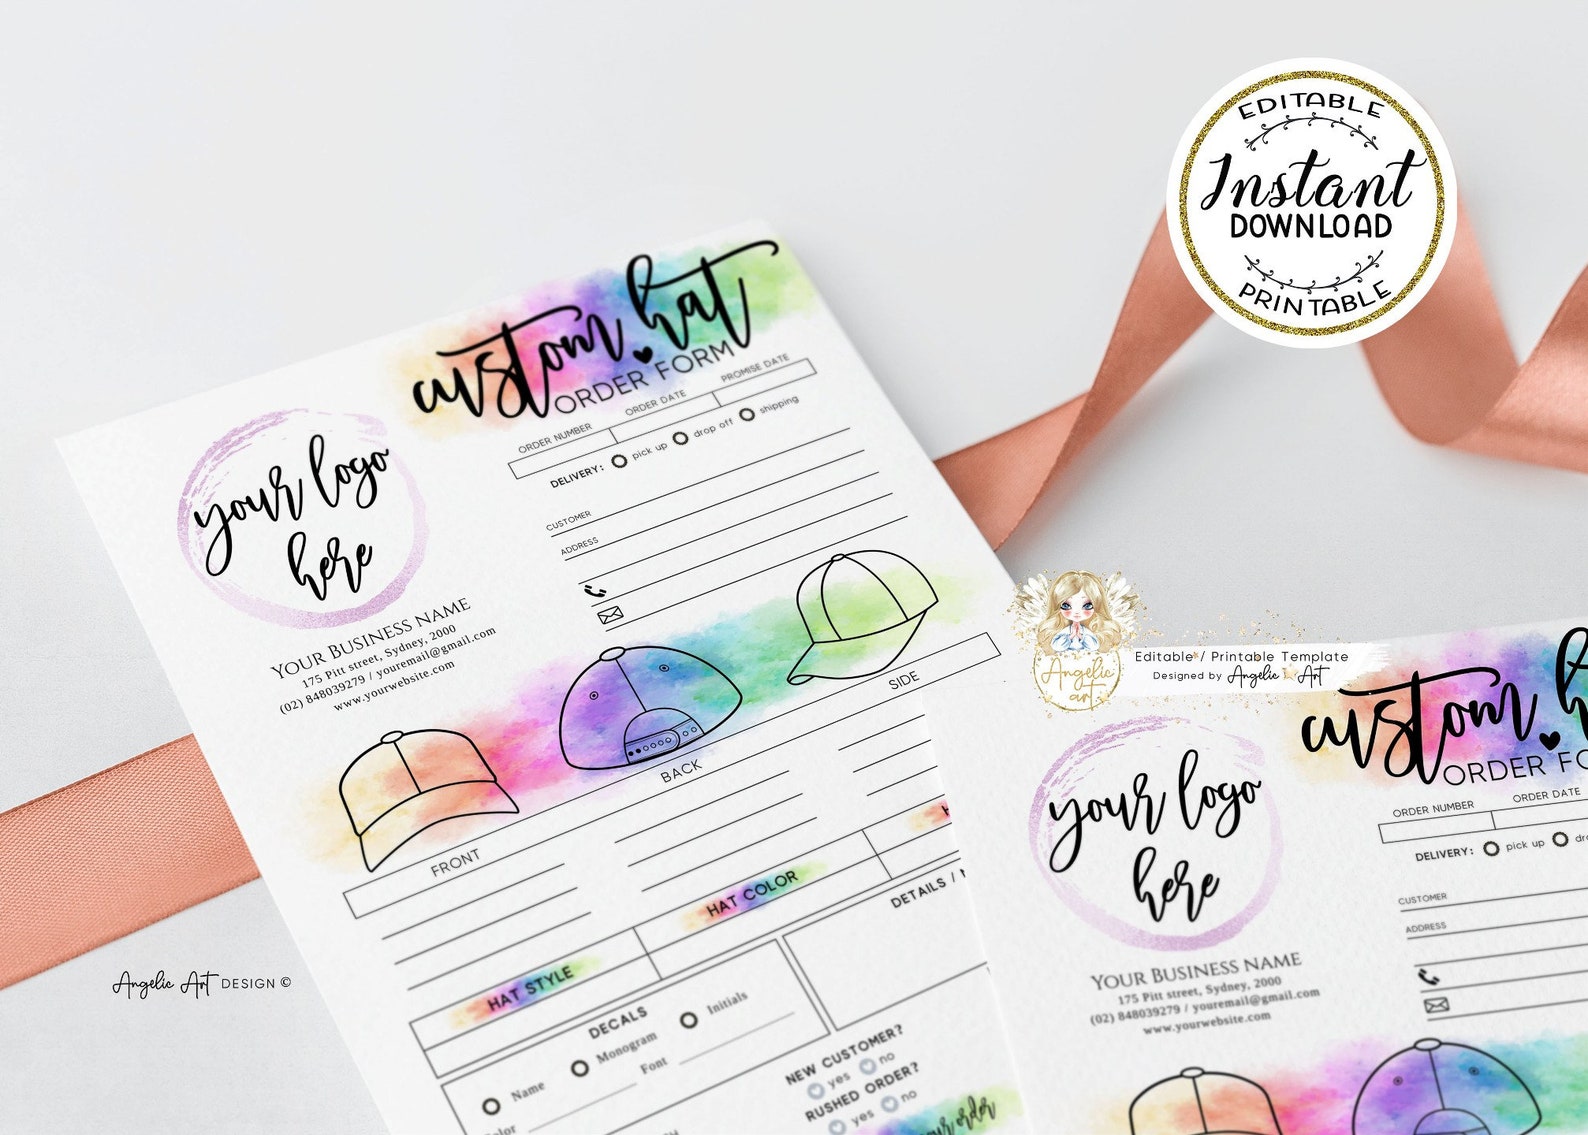 EDITABLE
Instant
DOWNLOAD
PRINTABLE
custom hat
ORDER FORM
ORDER NUMBER ORDER DATE PROMISE DATE
DELIVERY: pick up drop off shipping
CUSTOMER
ADDRESS
your logo
here
YOUR BUSINESS NAME
175 Pitt street, Sydney, 2000
(02) 848039279 / youremail@gmail.com
www.yourwebsite.com
FRONT BACK SIDE
HAT STYLE HAT COLOR
DETAILS /
DECALS
Name Monogram Initials
Font
NEW CUSTOMER?
yes no
RUSHED ORDER?
yes no
order
Angelic Art DESIGN ©
Angelic
art
Editable / Printable Template
Designed by Angelic Art
custom
ORDER
ORDER NUMBER ORDER DATE
DELIVERY: pick up
CUSTOMER
ADDRESS
your logo
here
YOUR BUSINESS NAME
175 Pitt street, Sydney, 2000
(02) 848039279 / youremail@gmail.com
www.yourwebsite.com